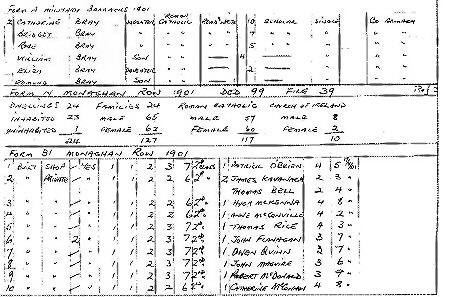 FORM A MILITARY BARRACKS 1901
2 CATHERINE BRAY DAUGHTER ROMAN CATHOLIC READ & WRITE 10 SCHOLAR SINGLE CO ARMAGH
BRIDGET BRAY " " " 7 " " "
ROSE BRAY " " 5 " "
WILLIAM BRAY SON " 4 "
ELIZA BRAY DAUGHTER " 2 "
EDMOND BRAY SON "
FORM N MONAGHAN ROW 1901 DED 99 FILE 39
DWELLINGS 24 FAMILIES 24 ROMAN CATHOLIC CHURCH OF IRELAND
INHABITED 23 MALE 65 MALE 57 MALE 8
UNINHABITED 1 FEMALE 62 FEMALE 60 FEMALE 2
24 127 117 10
FORM B1 MONAGHAN ROW 1901
1 BUILT SHOP YES 1 1 2 3 7 2nd CLASS 1 PATRICK O'BRIEN 4 5
2 " PRIVATE " 1 1 2 2 6 2nd 2 JAMES KAVANAGH 2 3 "
THOMAS BELL 2 4 "
3 " " " 1 1 2 2 6 2nd 1 HUGH McKENNA 4 8 "
4 " " " 1 1 2 2 6 2nd 1 ANNE McCONVILLE 4 2 "
5 " " " 1 1 2 3 7 2nd 1 THOMAS RICE 4 3 "
6 " " 2 " 1 1 2 3 7 2nd 1 JOHN FLANAGAN 3 7 "
7 " " " 1 1 2 3 7 2nd 1 OWEN QUINN 3 7 "
8 " " " 1 1 2 3 7 2nd 1 JOHN MAGUIRE 3 6 "
9 " " " 1 1 2 3 7 2nd 1 ROBERT McDONALD 3 9 "
10 " " " 1 1 2 2 6 2nd 1 CATHERINE 4 8 "